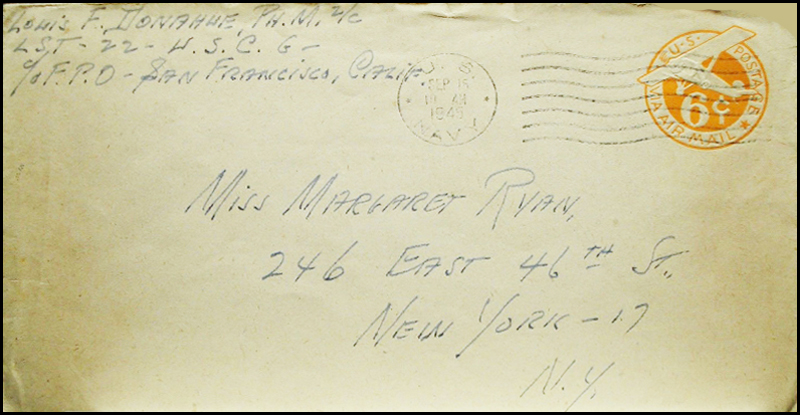 Louis F. Donahue, Ph.M. 2/c
LST - 22 - U.S.C.G -
c/o F.P.O - San Francisco, Calif
U.S.
SEP 15
10 AM
1945
NAVY
U.S. POSTAGE
6¢
VIA AIR MAIL
Miss Margaret Ryan,
246 East 46TH St.,
New York - 17
N.Y.